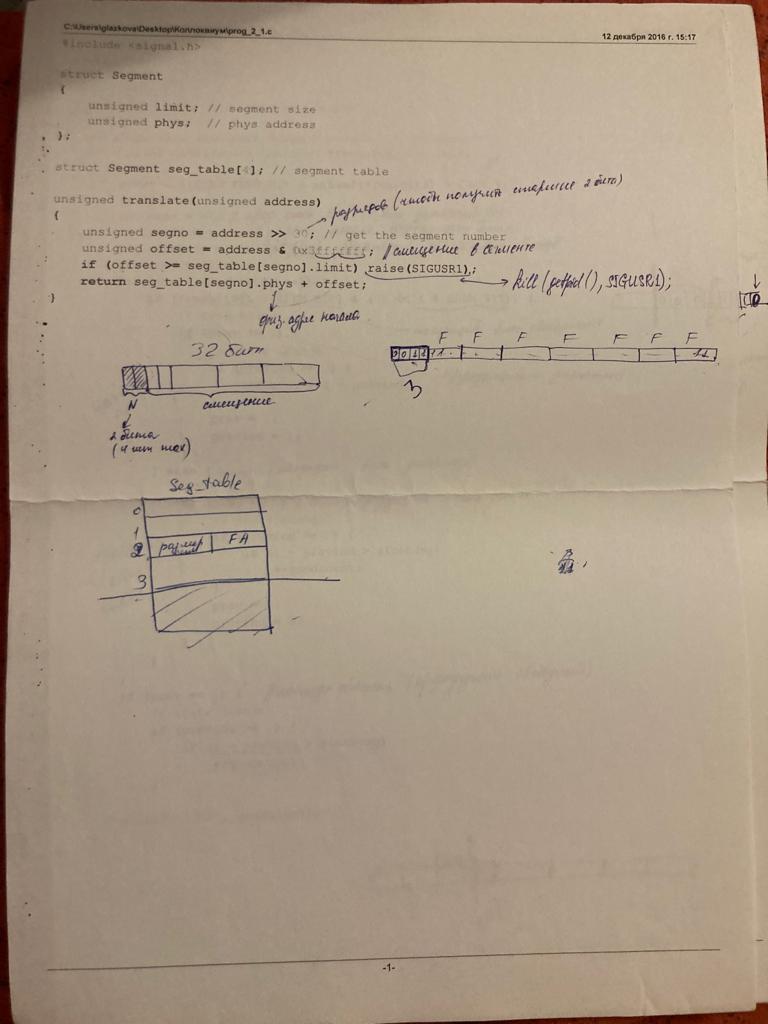 C:\Users\glazkova\Desktop\Коллоквиум\prog_2_1.c
12 декабря 2016 г. 15:17
#include <signal.h>
struct Segment
{
unsigned limit; // segment size
unsigned phys; // phys address
};
struct Segment seg_table[4]; // segment table
unsigned translate(unsigned address)
разрядов (чтобы получить старшие 2 бита)
{
unsigned segno = address >> 30; // get the segment number
unsigned offset = address & 0x3fffffff; // смещение в сегменте
if (offset >= seg_table[segno].limit) raise(SIGUSR1);
kill(getpid(), SIGUSR1);
return seg_table[segno].phys + offset;
}
физ. адрес начала
32 бит
F F F F F F F
0 0 1 1 1 1 11
3
N смещение
2 бита
(4 шт max)
Seg_table
0
1
2 размер FA
3
-1-